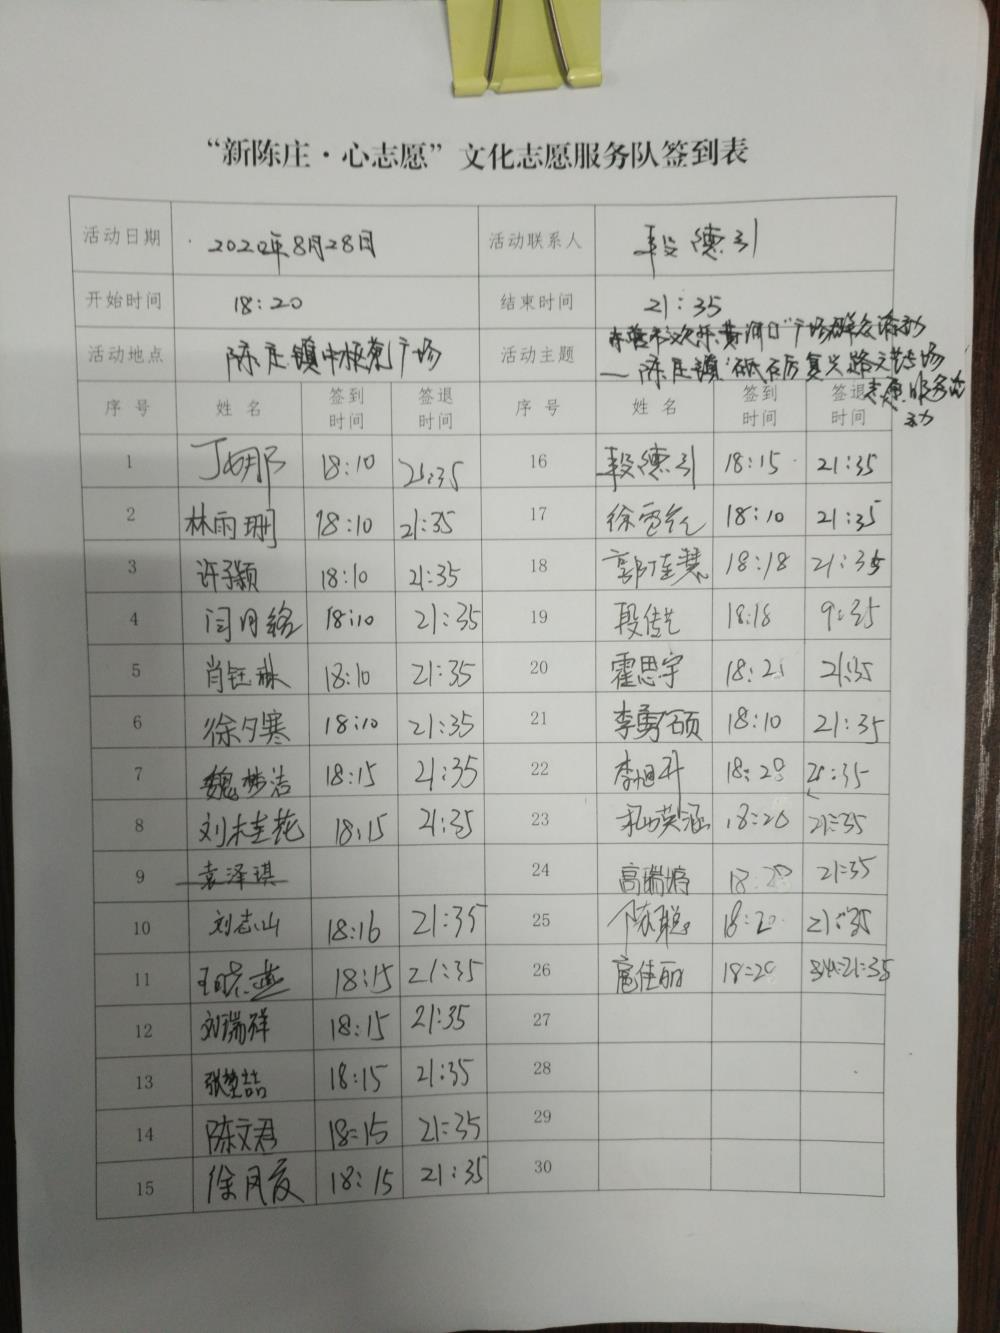 “新陈庄·心志愿”文化志愿服务队签到表
活动日期 2022年8月28日 活动联系人 段德引
开始时间 18:20 结束时间 21:35
活动地点 陈庄镇中核苑广场 活动主题 东营市“欢乐黄河口”广场群众活动
—陈庄镇“砥砺复兴路 文艺
志愿服务活
动
序号 姓名 签到时间 签退时间 序号 姓名 签到时间 签退时间
1 丁娜 18:10 21:35 16 段德引 18:15 21:35
2 林雨珊 18:10 21:35 17 徐雪 18:10 21:35
3 许子颖 18:10 21:35 18 郭佳慧 18:18 21:35
4 闫月铭 18:10 21:35 19 段传艺 18:18 9:35
5 肖钰琳 18:10 21:35 20 霍思宇 18:2 21:35
6 徐夕寒 18:10 21:35 21 李勇硕 18:10 21:35
7 魏梦洁 18:15 21:35 22 李旭升 18:20 21:35
8 刘桂花 18:15 21:35 23 英涵 18:20 21:35
9 袁泽琪 24 高瑞 18:20 21:35
10 刘志山 18:16 21:35 25 陈聪 18:20 21:35
11 王晓燕 18:15 21:35 26 扈佳丽 18:20 21:35
12 刘瑞祥 18:15 21:35 27
13 张楚喆 18:15 21:35 28
14 陈文君 18:15 21:35 29
15 徐凤 18:15 21:35 30